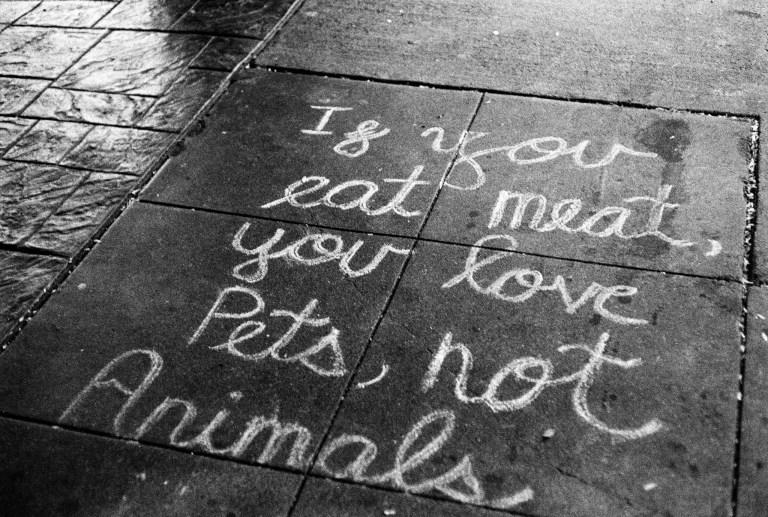 If you
eat meat,
you love
Pets, not
Animals